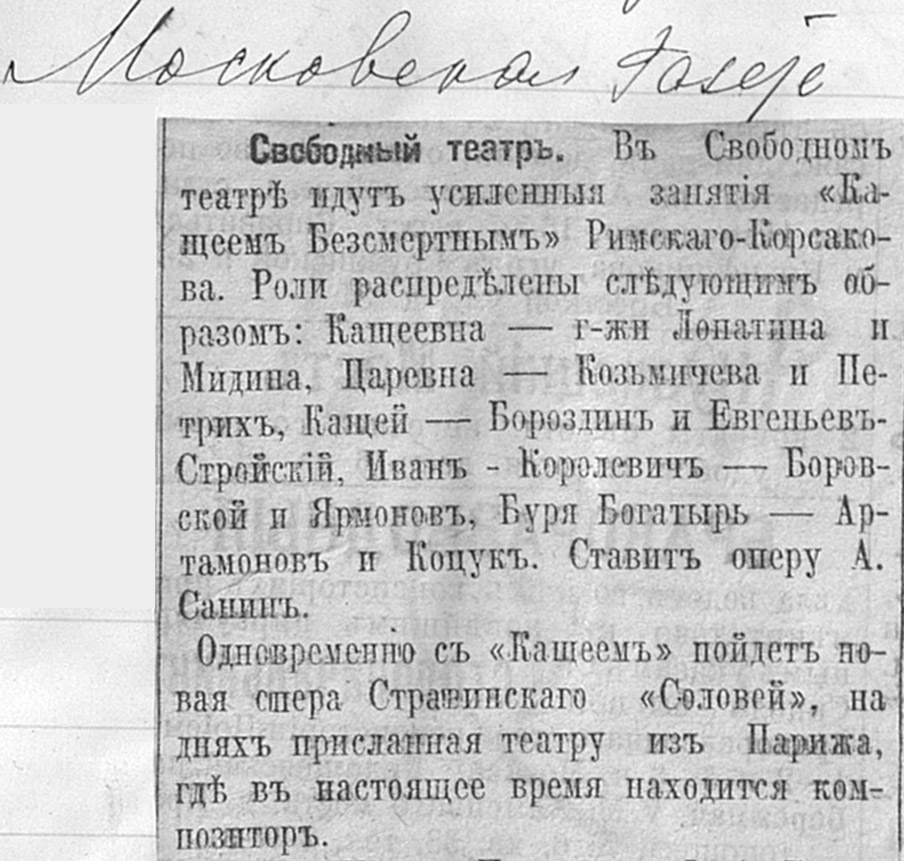 Московская Газе
Свободный театръ. Въ Свободномъ
театрѣ идутъ усиленныя занятія «Ка-
щеемъ Безсмертнымъ» Римскаго-Корсако-
ва. Роли распредѣлены слѣдующимъ об-
разомъ: Кащеевна — г-жи Лопатина и
Мидина, Царевна — Козьмичева и Пе-
трихъ, Кащей — Бороздинъ и Евгеньевъ-
Стройскій, Иванъ - Королевичъ — Боров-
ской и Ярмоновъ, Буря Богатырь — Ар-
тамоновъ и Коцукъ. Ставитъ оперу А.
Санинъ.
Одновременно съ «Кащеемъ» пойдетъ но-
вая опера Стравинскаго «Соловей», на
дняхъ присланная театру изъ Парижа,
гдѣ въ настоящее время находится ком-
позиторъ.